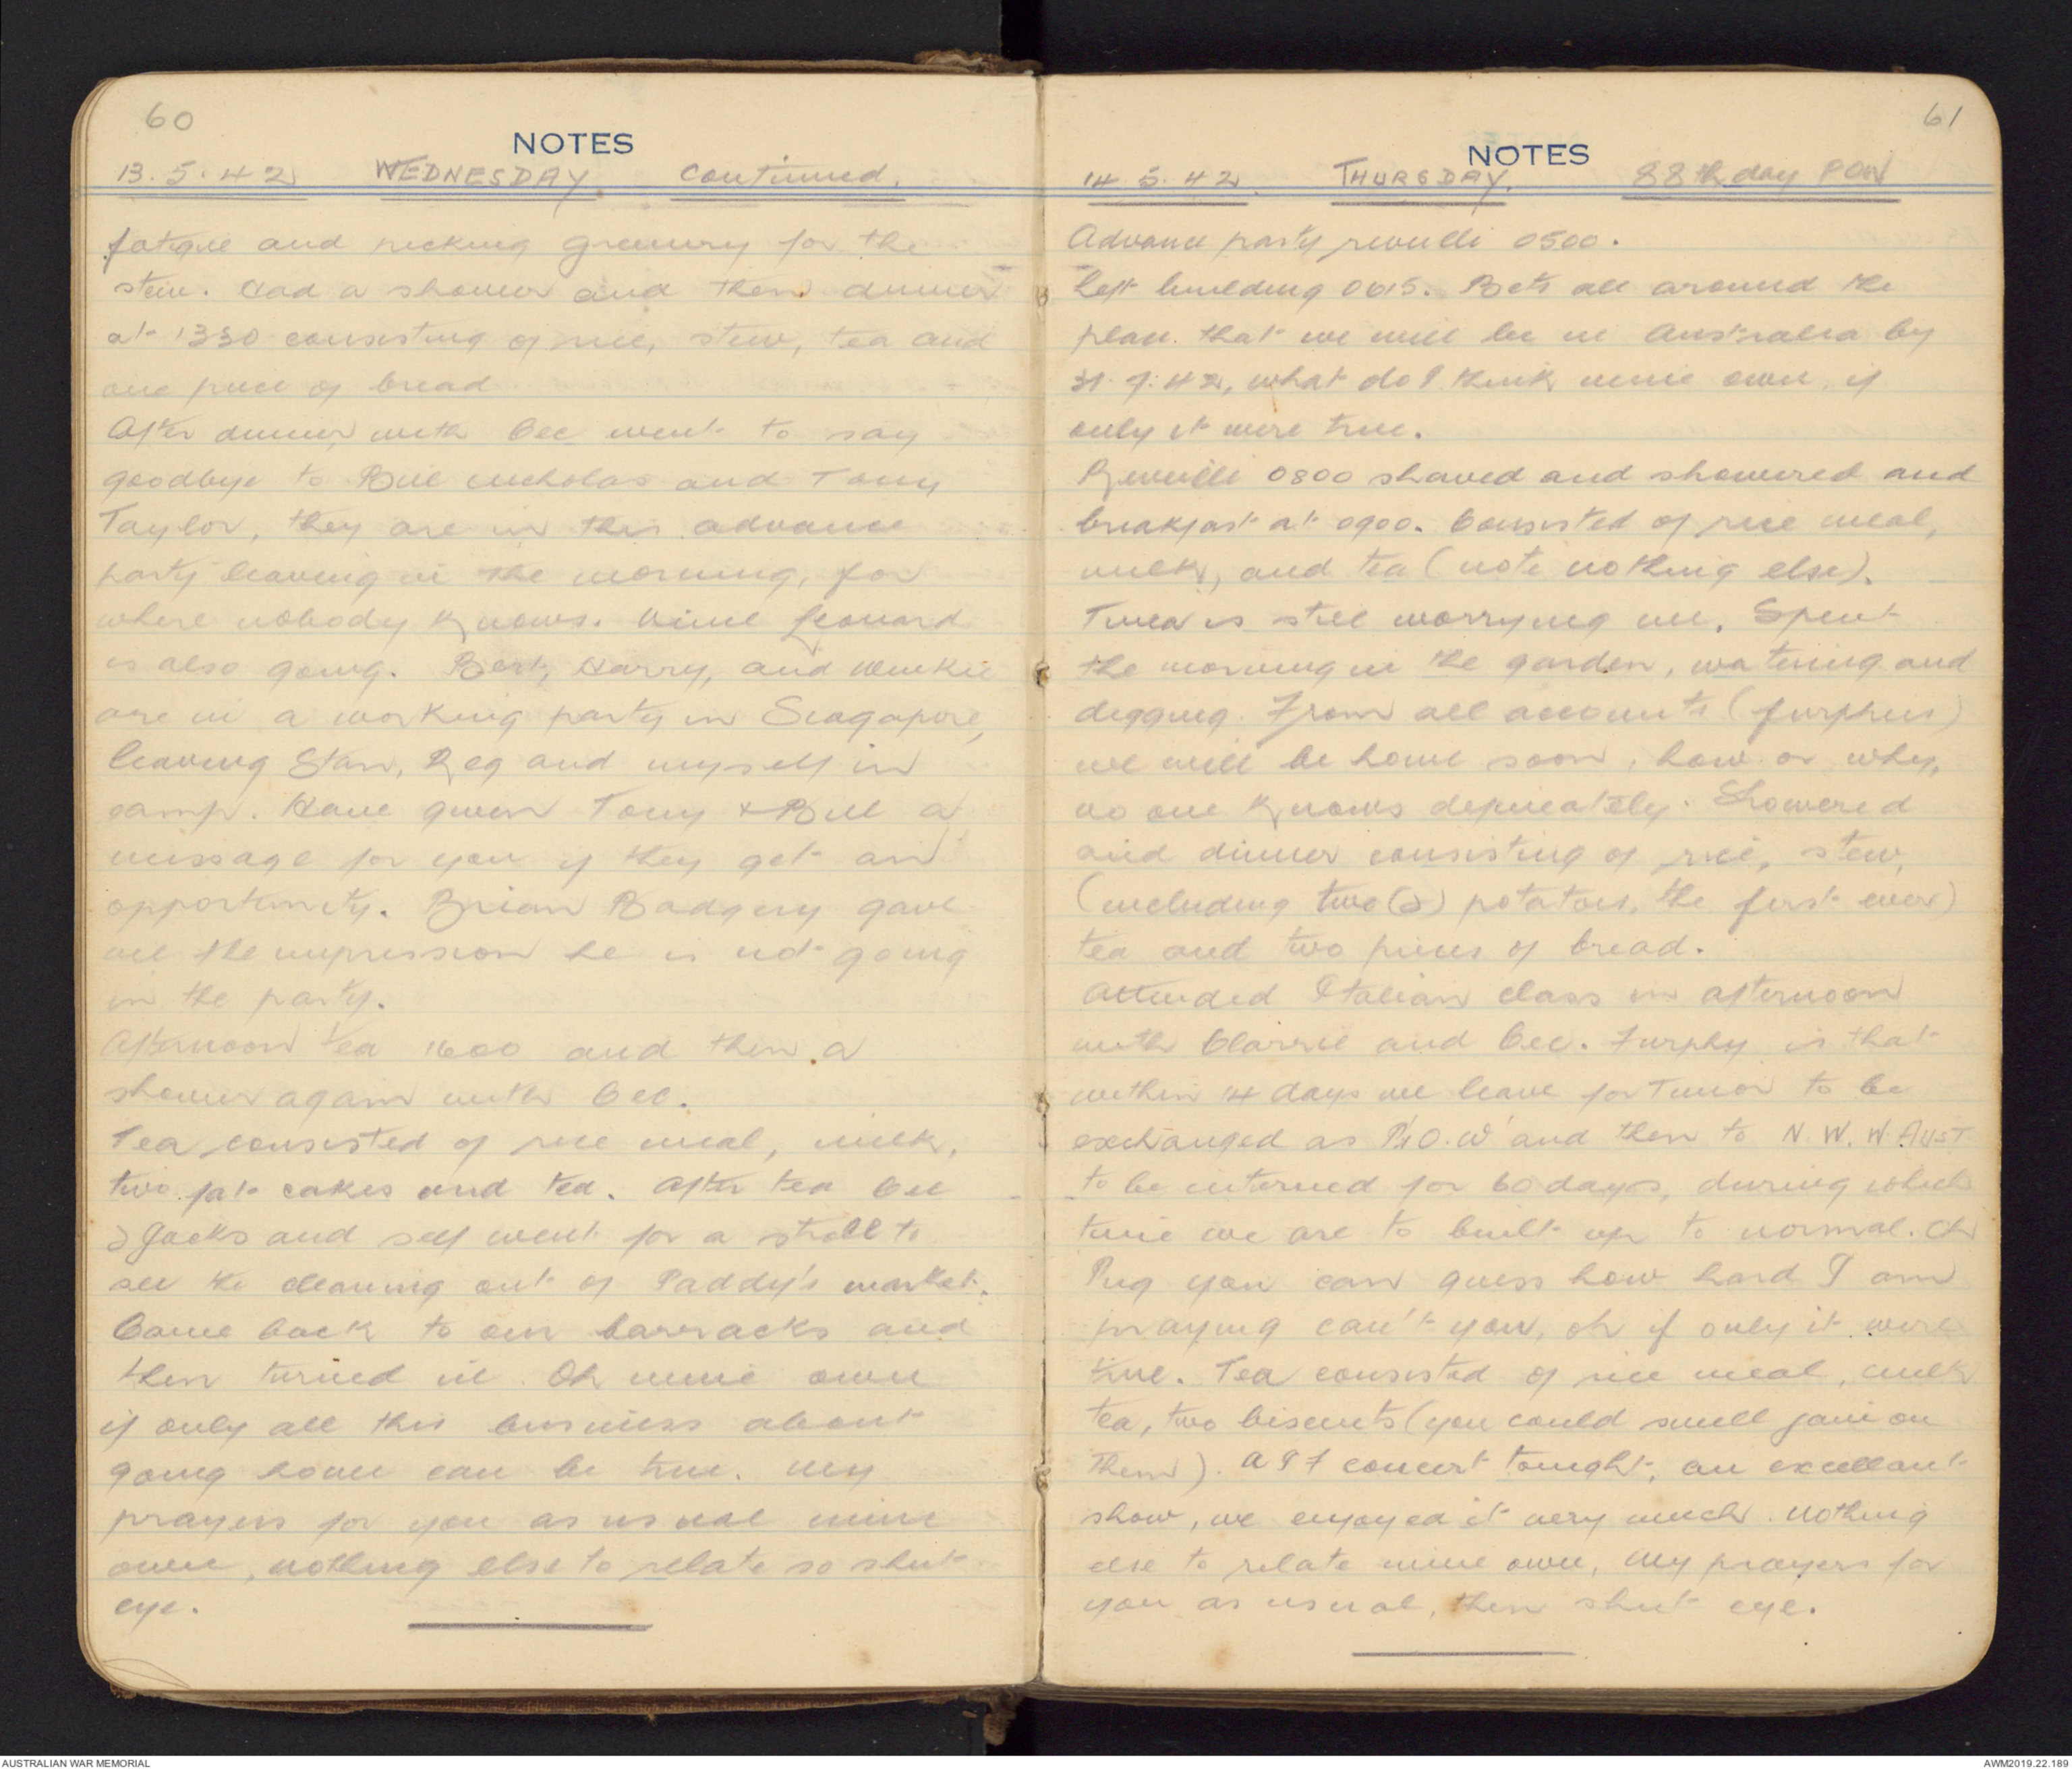 60
NOTES
13.5.42 WEDNESDAY. Continued.
fatigue and picking greenery for the
stew. Had a shower and then dinner
at 1330 consisting of rice, stew, tea and
one piece of bread
After dinner with Cec went to say
goodbye to Bill Nicholas and Tony
Taylor, they are in this advance
party leaving in the morning, for
where nobody knows. Leonard
is also going. Bert, Harry, and Winkie
are in a working party in Singapore,
leaving Stan, Reg and myself in
camp. Have given Tony & Bill a
message for you if they get an
opportunity. Brian Badgery gave
me the impression he is not going
in the party.
Afternoon tea 1600 and then a
shower again with Cec.
Tea consisted of rice meal, milk,
two fat cakes and tea. After tea Cec
2 Jacks and self went for a stroll to
see the cleaning out of Paddy's market.
Came back to our barracks and
then turned in. Oh mine own
if only all this business about
going home can be true. My
prayers for you as usual mine
own, nothing else to relate so shut
eye.
61
NOTES
14.5.42. THURSDAY. 88th day POW
Advance party reveille 0500.
Left building 0615. Bets all around the
place that we will be in Australia by
31.7.42, what do I think mine own, if
only it were true.
Reveille 0800 shaved and showered and
breakfast at 0900. Consisted of rice meal,
milk, and tea (note nothing else).
Tinea is still worrying me. Spent
the morning in the garden, watering and
digging. From all accounts (furphies)
we will be home soon, how or why,
no one knows definately. Showered
and dinner consisting of rice, stew,
(including two (2) potatoes, the first ever)
tea and two pieces of bread.
Attended Italian class in afternoon
with Clarrie and Cec. Furphy is that
within 14 days we leave for Timor to be
exchanged as P's O.W and then to N.W. W.AUST
to be interned for 60 days, during which
time we are to built up to normal. Oh
Pug you can guess how hard I am
praying can't you, oh if only it were
true. Tea consisted of rice meal, milk
tea, two biscuits (you could smell jam on
them). AIF concert tonight, an excellant
show, we enjoyed it very much. Nothing
else to relate mine own, My prayers for
you as usual, then shut eye.
AUSTRALIAN WAR MEMORIAL
AWM2019.22.189